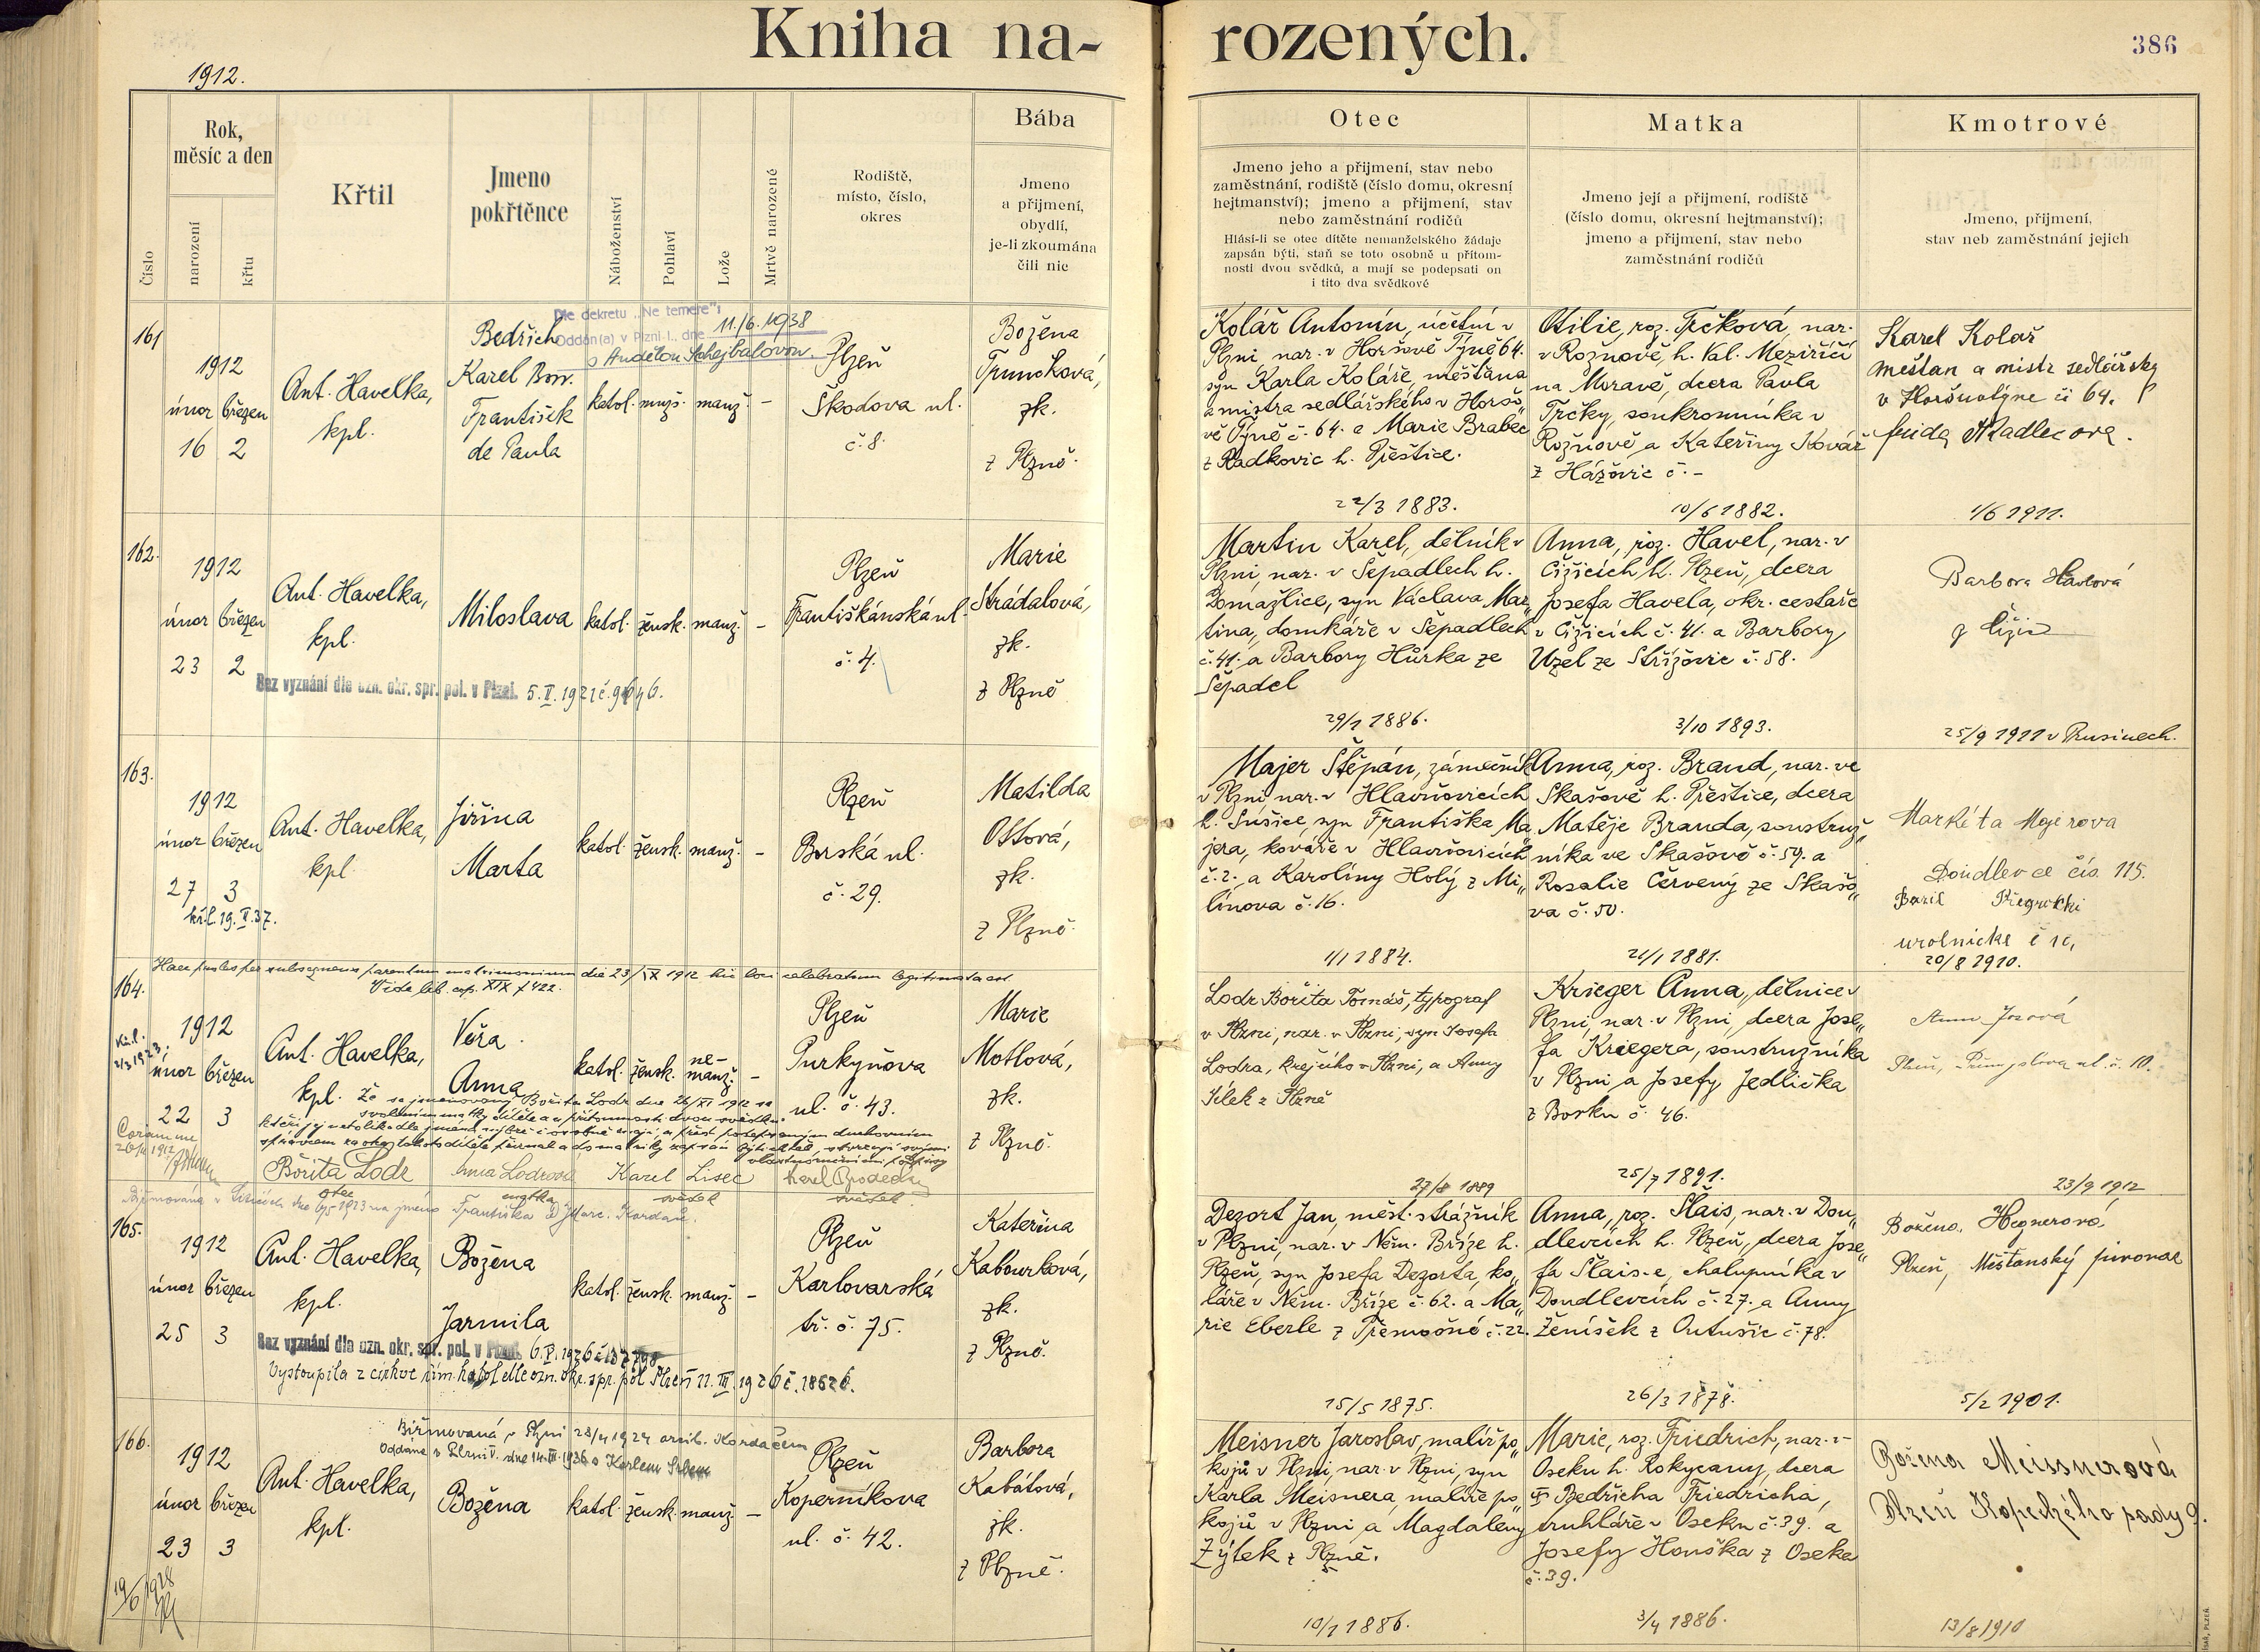 Kniha na-
rozených.
386
1912.
Číslo
Rok,
měsíc a den
narození
křtu
Křtil
Jmeno
pokřtěnce
Náboženství
Pohlaví
Lože
Mrtvě narozené
Rodiště,
místo, číslo,
okres
Bába
Jmeno
a přijmení,
obydlí,
je-li zkoumána
čili nic
Otec
Jmeno jeho a přijmení, stav nebo
zaměstnání, rodiště (číslo domu, okresní
hejtmanství); jmeno a přijmení, stav
nebo zaměstnání rodičů
Hlásí-li se otec dítěte nemanželského žádaje
zapsán býti, staň se toto osobně u přítom-
nosti dvou svědků, a mají se podepsati on
i tito dva svědkové
Matka
Jmeno její a přijmení, rodiště
(číslo domu, okresní hejtmanství);
jmeno a přijmení, stav nebo
zaměstnání rodičů
Kmotrové
Jmeno, přijmení,
stav neb zaměstnání jejich
161
1912
únor březen
16 2
Ant. Havelka,
kpl.
Bedřich
Karel Bor.
František
de Paula
Dle dekretu „Ne temere“:
Oddán(a) v Plzni-I., dne 11./6. 1938
s Andělou Schejbalovou.
katol. muž. manž. -
Plzeň
Škodova ul.
č. 8.
Božena
Trunoková,
zk.
z Plzně.
Kolář Antonín, účetní v
Plzni, nar. v Horšově Týně 64.
syn Karla Koláře, měšťana
a mistra sedlářského v Horšo„
vě Týně č. 64. a Marie Brabec
z Radkovic h. Přeštice.
22/3 1883.
Otilie, roz. Trčková, nar.
v Rožnově, h. Val. Meziříčí
na Moravě, dcera Pavla
Trčky, soukromníka v
Rožnově a Kateřiny Kovář
z Hážovic č. -
10/6 1882.
Karel Kolař
měštan a mistr sedlářsky
v Horšůvtýne či 64.
Kadlecova.
1/6 1911.
162.
1912
únor březen
23 2
Ant. Havelka,
kpl.
Miloslava
katol. žensk. manž. -
Plzeň
Františkánská ul.
č. 4.
Marie
Strádalová,
zk.
z Plzně
Bez vyznání dle ozn. okr. spr. pol. v Plzni. 5. V. 1921 č. 9646.
Martin Karel, dělník v
Plzni, nar. v Šepadlech h.
Domažlice, syn Václava Mar„
tina, domkáře v Šepadlech
č. 41. a Barbory Hůrka ze
Šepadel
29/1 1886.
Anna, roz. Havel, nar. v
Čižicích h. Plzeň, dcera
Josefa Havela, okr. cestáře
v Čižicích č. 41. a Barbory
Uzel ze Střížovic č. 58.
3/10 1893.
Barbora Havlová
z Čižic
25/9 1911 v Prusinech.
163.
1912
únor březen
27 3
Ant. Havelka,
kpl.
Jiřina
Marta
katol. žensk. manž. -
Plzeň
Borská ul.
č. 29.
Matilda
Ottová,
zk.
z Plzně.
kř.l. 19. V. 37.
Majer Štěpán, zámečník
v Plzni nar. v Hlavňovicích
h. Sušice, syn Františka Ma
jera, kováře v Hlavňovicích
č. 2. a Karolíny Holý z Mi„
línova č. 16.
1/1 1884.
Anna, roz. Brand, nar. ve
Skašově h. Přeštice, dcera
Matěje Branda, soustruž„
níka ve Skašově č. 59. a
Rosalie Červený ze Skašo„
va č. 50.
21/1 1881.
Markéta Majerova
Doudlevce čís. 115.
20/8 1910.
Haec proles per subsequens parentum matrimonium die 23/IX 1912 hic loci celebratum legitimata est
Vide lib. cop. XIX f 422.
164.
1912
únor březen
22 3
Ant. Havelka,
kpl.
Věra
Anna
katol. žensk. ne-
manž. -
Plzeň
Purkyňova
ul. č. 43.
Marie
Motlová,
zk.
z Plzně.
Že se jmenovaný Bořita Lodr dne 26/XI 1912 se
svolením matky dítěte a u přítomnosti dvou svědků,
vlastnoručními podpisy
Bořita Lodr Anna Lodrová Karel Lisec
otec matka svědek svědek
Lodr Bořita Tomáš, typograf
v Plzni, nar. v Plzni, syn Josefa
Lodra, krejčího v Plzni, a Anny
Jílek z Plzně
27/8 1889
Krieger Anna, dělnice v
Plzni, nar. v Plzni, dcera Jose„
fa Kriegera, soustružníka
v Plzni a Josefy Jedlička
z Borku č. 46.
25/7 1891.
Plzeň, Přemyslova ul. č. 10.
23/9 1912
165.
1912
únor březen
25 3
Ant. Havelka,
kpl.
Božena
Jarmila
katol. žensk. manž. -
Plzeň
Karlovarská
tř. č. 75.
Kateřina
Kabourková,
zk.
z Plzně.
Bez vyznání dle ozn. okr. spr. pol. v Plzni.
Vystoupila z církve řím. katol. dle ozn. okr. spr. pol. Plzeň 11. III. 1926 č. 18626.
Dezort Jan, měst. strážník
v Plzni, nar. v Něm. Bříze h.
Plzeň, syn Josefa Dezorta, ko„
láře v Něm. Bříze č. 62. a Ma„
rie Eberle z Přemošné č. 22.
15/5 1875.
Anna, roz. Šlais, nar. v Dou„
dlevcích h. Plzeň, dcera Jose„
fa Šlais-e, chalupníka v
Doudlevcích č. 27. a Anny
Ženíšek z Outušic č. 78.
26/3 1878.
Božena Hegnerová
Plzeň, Měšťanský pivovar
5/2 1901.
166.
1912
únor březen
23 3
Ant. Havelka,
kpl.
Božena
katol. žensk. manž. -
Plzeň
Koperníkova
ul. č. 42.
Barbora
Kabátová,
zk.
z Plzně.
Biřmovaná v Plzni 28/4 1924 arcib. Kordačem
Oddána v Plzni V. dne 14. III. 1936 s Karlem
Meisner Jaroslav, malíř po„
kojů v Plzni, nar. v Plzni, syn
Karla Meisnera, malíře po„
kojů v Plzni a Magdaleny
Žýtek z Plzně.
10/1 1886.
Marie, roz. Friedrich, nar. v
Oseku h. Rokycany, dcera
Bedřicha Friedricha,
truhláře v Oseku č. 39. a
Josefy Houška z Oseka
č. 39.
3/4 1886.
Božena Meissnerová
Plzeň Kopeckého sady 9.
13/8 1910